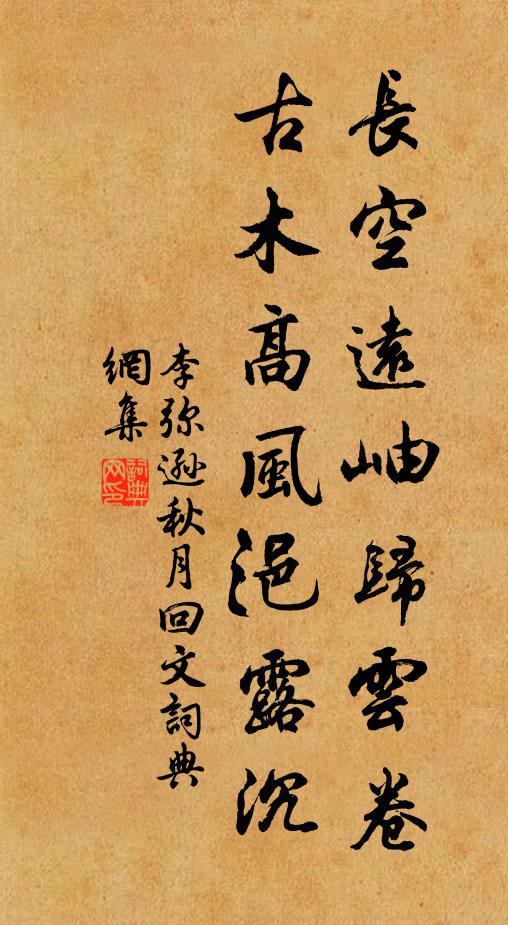 長空遠岫歸雲卷
古木高風浥露沉
李弥遜秋月回文詞典
網集
詞典网印